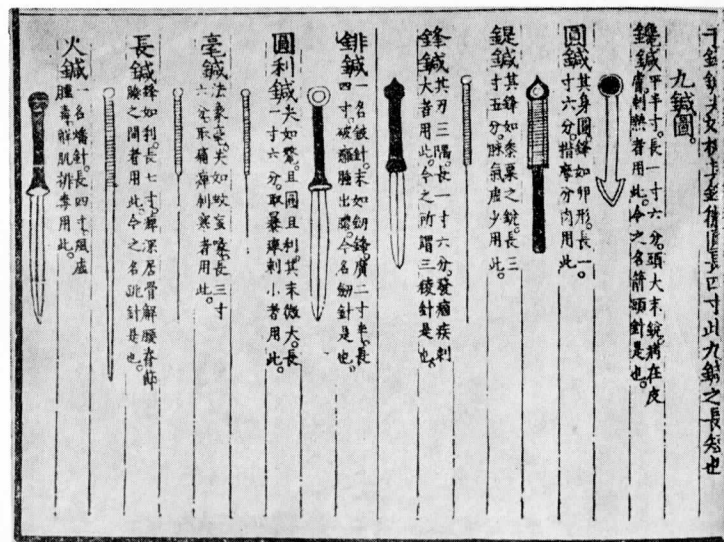 長四寸此九鍼之長短也
九鍼圖。
鑱鍼平半寸。長一寸六分。頭大末銳。病在皮
膚。刺熱者用此。今之名箭頭針是也。
圓鍼其身圓。鋒如卵形。長一
寸六分。揩摩分肉用此。
鍉鍼其鋒如黍粟之銳。長三
寸五分。脉氣虛少用此。
鋒鍼其刃三隅。長一寸六分。發痼疾刺
大者用此。今之所謂三稜針是也。
鍼一名鈹針。末如劒鋒。廣二寸半。長
四寸。破癰腫出膿。今名劒針是也。
圓利鍼尖如氂。且圓且利。其末微大。長
一寸六分。取暴痺刺小者用此。
毫鍼法象毫。尖如蚊虻喙。長三寸
六分。取痛痺刺寒者用此。
長鍼鋒如利。長七寸。痺深居骨解腰脊節
腠之間者用此。今之名跳針是也。
火鍼一名燔針。長四寸。風虛
腫毒。解肌排毒用此。